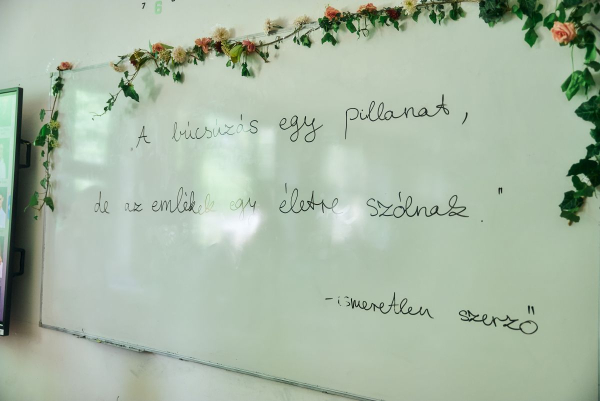 „A búcsúzás egy pillanat,
de az emlékek egy életre szólnak."
-ismeretlen szerző